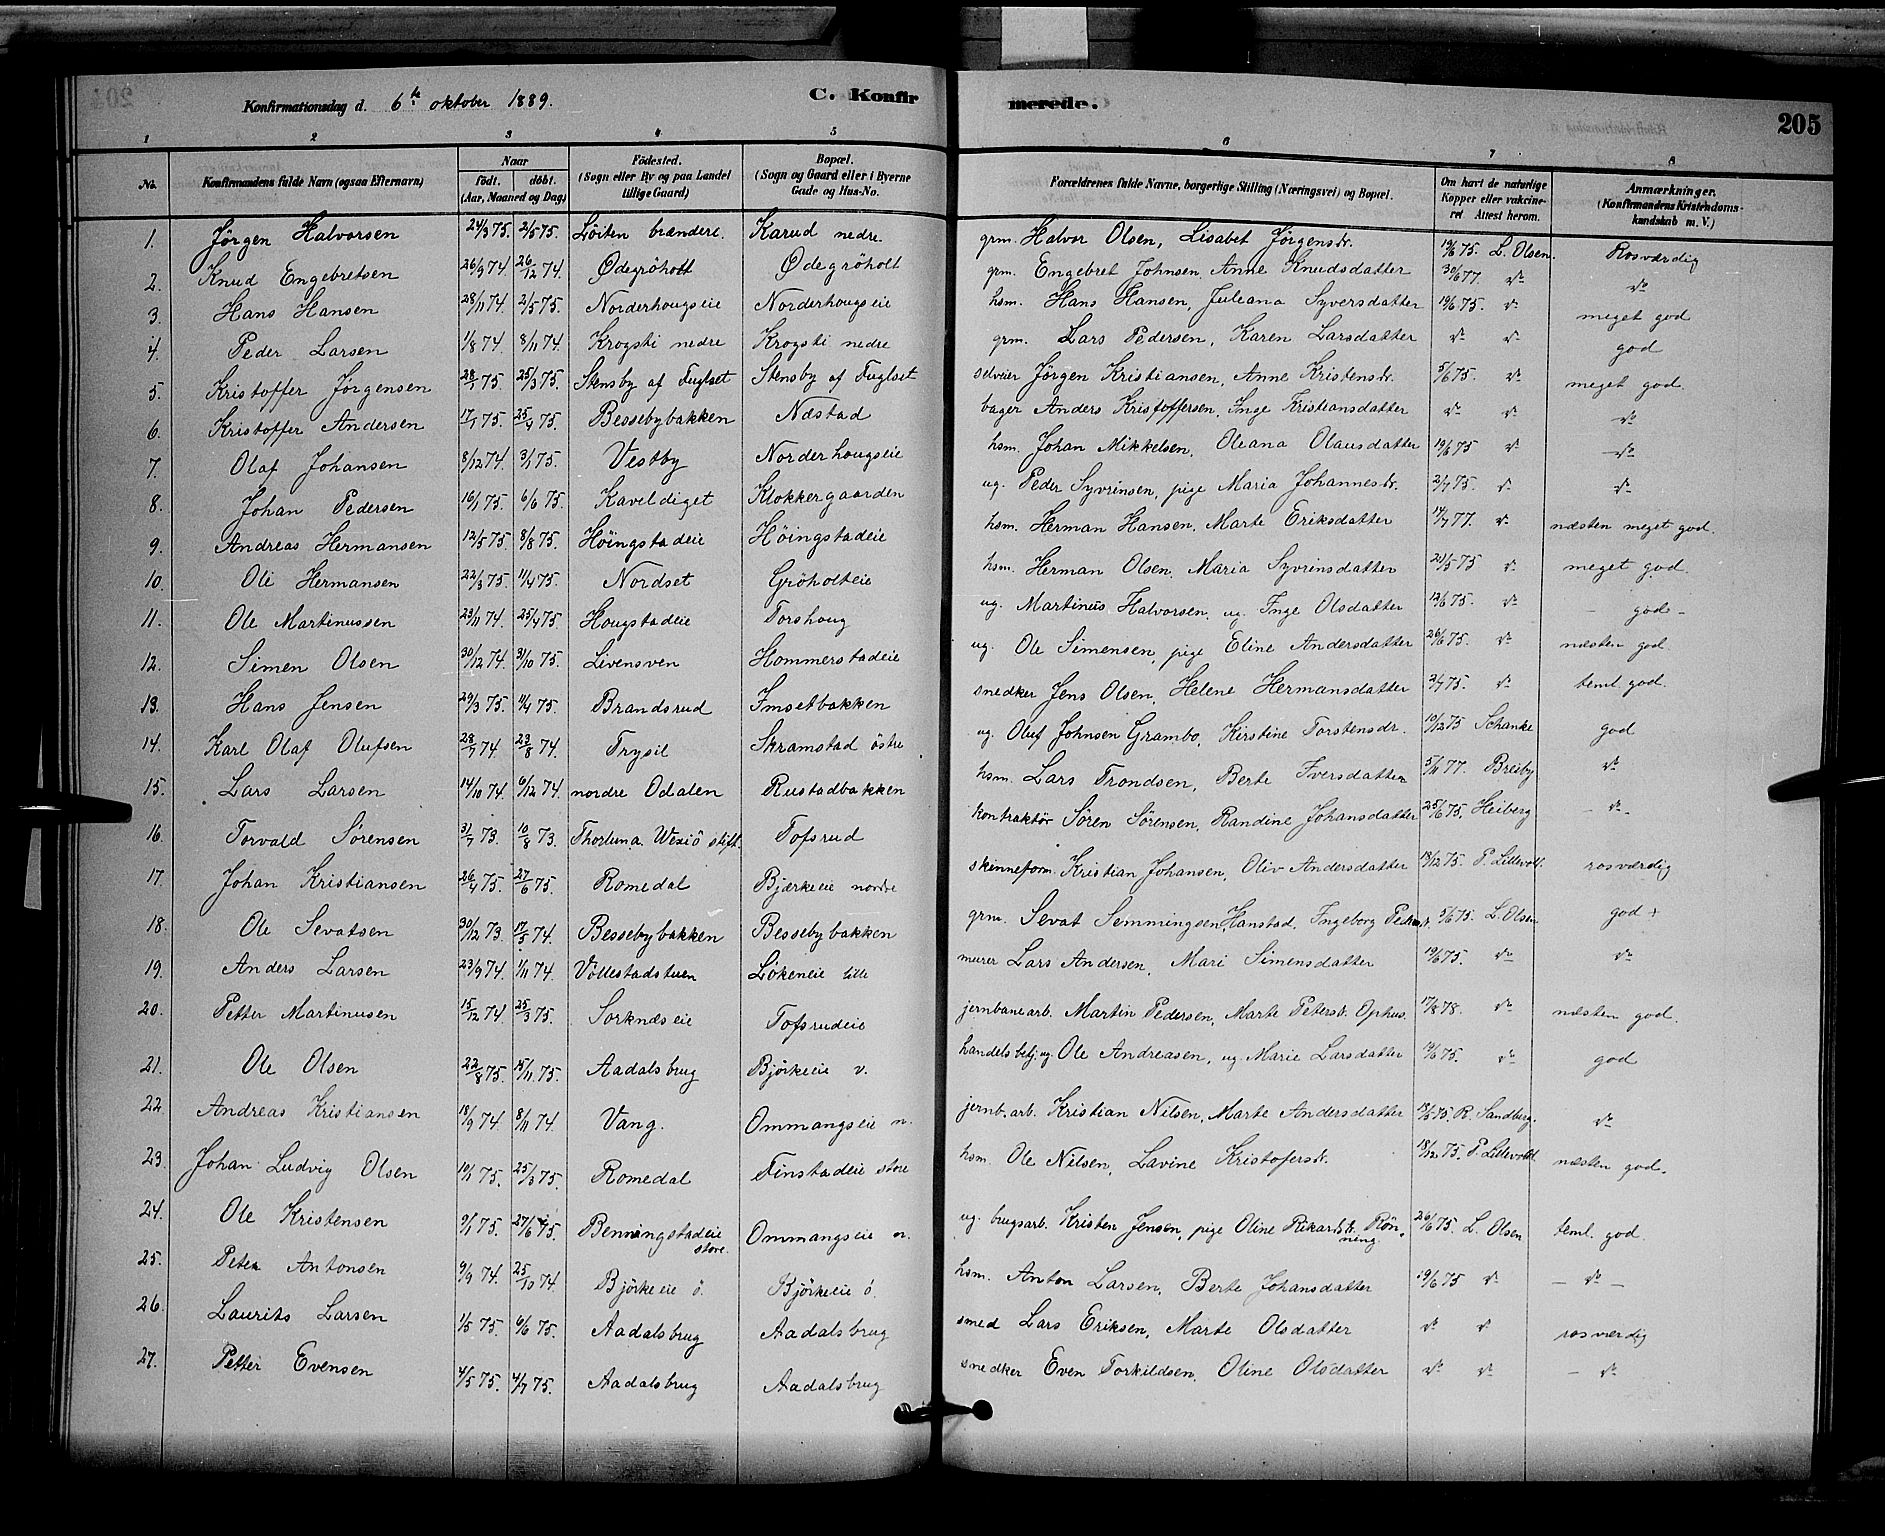 Konfirmationsdag d. 6te oktober 1889. C. Konfirmerede. 205
1 2 3 4 5 6 7 8
No. Konfirmandens fulde Navn (ogsaa Efternavn) Naar født. døbt. (Aar, Maaned og Dag) Fødested. (Sogn eller By og paa Landet tillige Gaard) Bopæl. (Sogn og Gaard eller i Byerne Gade og Hus-No. Forældrenes fulde Navne, borgerlige Stilling (Næringsvei) og Bopæl. Om havt de naturlige Kopper eller vakcineret. Attest herom. Anmærkninger. (Konfirmandens Kristendomskundskab m. V.)
1. Jörgen Halvorsen 24/3 75. 2/5 75. Löiten brænderi. Karud nedre. grm. Halvor Olsen, Lisabet Jörgensdr. 19/6 75. L. Olsen. Rosværdig
2. Knud Engebretsen 26/9 74 26/12 74. Ödegröholt Ödegröholt grm. Engebret Johnsen, Anne Knudsdatter 30/6 77. do do
3. Hans Hansen 28/11 74. 2/5 75. Norderhougseie Norderhougseie hsm. Hans Hansen, Juleana Syversdatter 19/6 75. do meget god
4. Peder Larsen 1/8 74. 8/11 74. Krogsti nedre Krogsti nedre grm. Lars Pedersen, Karen Larsdatter do do god
5. Kristoffer Jörgensen 28/1 75. 25/3 75. Stensby af Fuglset Stensby af Fuglset selveier Jörgen Kristiansen, Anne Kristensdr. 5/6 75. do meget god
6. Kristoffer Andersen 17/1 75. 25/4 75. Bessebybakken Næstad bager Anders Kristoffersen, Inge Kristiansdatter do do do
7. Olaf Johansen 8/12 74. 3/1 75. Vestby Norderhougseie hsm. Johan Mikkelsen, Oleana Olausdatter 19/6 75 do do
8. Johan Pedersen 16/1 75. 6/6 75. Kaveldiget Klokkergaarden ug. Peder Syvrinsen, pige Maria Johannesdr. 2/7 75. do do
9. Andreas Hermansen 12/5 75. 8/8 75. Höingstadeie Höingstadeie hsm. Herman Hansen, Marte Eriksdatter 14/7 77. do næsten meget god.
10. Ole Hermansen 22/3 75. 11/4 75. Nordset Gröholteie hsm. Herman Olsen, Maria Syvrinsdatter 21/5 75 do meget god.
11. Ole Martinussen 23/11 74. 25/4 75. Hougstadeie Torshoug ug. Martinus Halvorsen, ug. Inge Olsdatter 12/6 75. do - god -
12. Simen Olsen 30/12 74. 31/10 75. Livensven Hommerstadeie ug. Ole Simensen, pige Eline Andersdatter 26/6 75. do næsten god.
13. Hans Jensen 29/3 75. 11/4 75. Brandsrud Imsetbakken snedker Jens Olsen, Helene Hermansdatter 3/7 75. do teml. god.
14. Karl Olaf Olufsen 28/7 74. 23/8 74. Trysil Skramstad östre ug. Oluf Johnsen Grambo, Kerstine Torstensdr. 10/12 75 Schanke god
15. Lars Larsen 14/10 74. 6/12 74. nordre Odalen Rustadbakken hsm. Lars Trondsen, Berte Iversdatter 5/11 77. Breiby do
16. Torvald Sörensen 31/7 73. 10/8 73. Thorluna Wexiö stift. Tofsrud kontraktör Sören Sörensen, Randine Johansdatter 25/6 75. Heiberg - do -
17. Johan Kristiansen 26/4 75. 27/6 75. Romedal Bjærkeie nordre skinneform. Kristian Johansen, Oliv Andersdatter 18/12 75. P. Lillevolt. rosværdig
18. Ole Sevatsen 30/12 73. 17/5 74. Bessebybakken Bessebybakken grm. Sevat Semmingsen Hanstad, Ingeborg Pedersdr. 5/6 75. L. Olsen god +
19. Anders Larsen 23/9 74. 1/11 74 Vollestadstuen Lökeneie lille murer Lars Andersen, Mari Simensdatter 19/6 75. do do
20. Petter Martinusen 15/12 74. 25/3 75. Sorknæseie Tofsrudeie jernbanearb. Martin Pedersen, Marte Petersdr. Ophus. 17/8 78. do næsten god.
21. Ole Olsen 22/8 75. 15/11 75. Aadalsbrug Björkeeie v. handelsbetj. ug. Ole Andreasen, ug. Marie Larsdatter 19/6 75. do god
22. Andreas Kristiansen 18/9 74. 8/11 74. Vang. Ommangseie n. jernb. arb. Kristian Nilsen, Marte Andersdatter 75. R. Sandberg. do
23. Johan Ludvig Olsen 10/1 75. 25/3 75. Romedal Finstadeie store hsm. Ole Nilsen, Lavine Kristofersdr. 18/12 75. P. Lillevolt næsten god.
24. Ole Kristensen 9/1 75. 27/6 75. Benningstadeie store. Ommangseie n. ug. brugsarb. Kristen Jensen, pige Oline Rikardsdr. Rönning 26/6 75. L. Olsen teml. god.
25. Peter Antonsen 9/9 74. 25/10 74. Björkeeie ö. Björkeeie ö. hsm. Anton Larsen, Berte Johansdatter 19/6 75 do - do -
26. Laurits Larsen 1/5 75. 6/6 75. Aadalsbrug Aadalsbrug smed Lars Eriksen, Marte Olsdatter do do rosværdig
27. Petter Evensen 4/5 75. 4/7 75. Aadalsbrug Aadalsbrug snedker Even Torkildsen, Oline Olsdatter do do - do